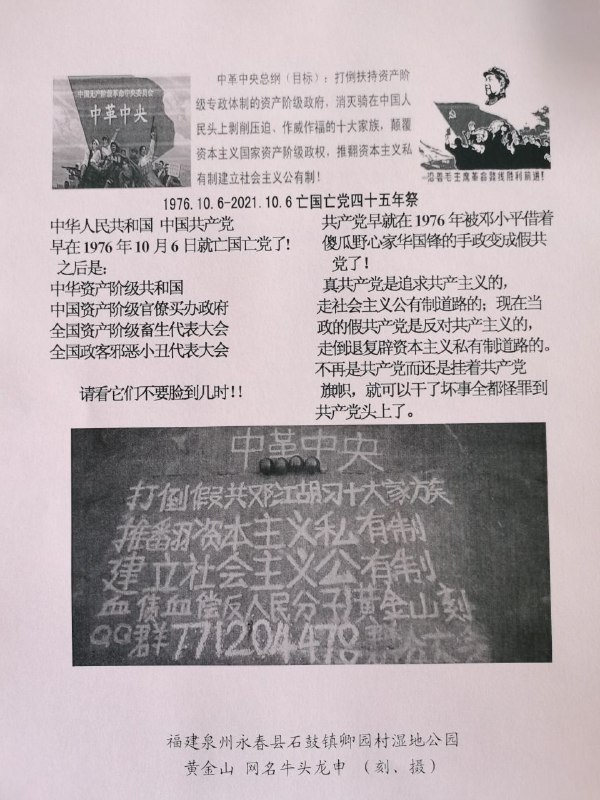 中国无产阶级革命中央委员会
中革中央
中革中央总纲（目标）：打倒扶持资产阶
级专政体制的资产阶级政府，消灭骑在中国人
民头上剥削压迫、作威作福的十大家族，颠覆
资本主义国家资产阶级政权，推翻资本主义私
有制建立社会主义公有制！
沿着毛主席革命路线胜利前进！
1976.10.6-2021.10.6 亡国亡党四十五年祭
中华人民共和国 中国共产党
早在1976年10月6日就亡国亡党了!
之后是:
中华资产阶级共和国
中国资产阶级官僚买办政府
全国资产阶级畜生代表大会
全国政客邪恶小丑代表大会
请看它们不要脸到几时!!
共产党早就在1976年被邓小平借着
傻瓜野心家华国锋的手政变成假共
党了!
真共产党是追求共产主义的，
走社会主义公有制道路的；现在当
政的假共产党是反对共产主义的，
走倒退复辟资本主义私有制道路的。
不再是共产党而还是挂着共产党
旗帜，就可以干了坏事全都怪罪到
共产党头上了。
中革中央
打倒假共邓江胡习十大家族
推翻资本主义私有制
建立社会主义公有制
血债血偿反人民分子 黄金山刻
QQ群771204478
福建泉州永春县石鼓镇卿园村湿地公园
黄金山 网名牛头龙申 （刻、摄）